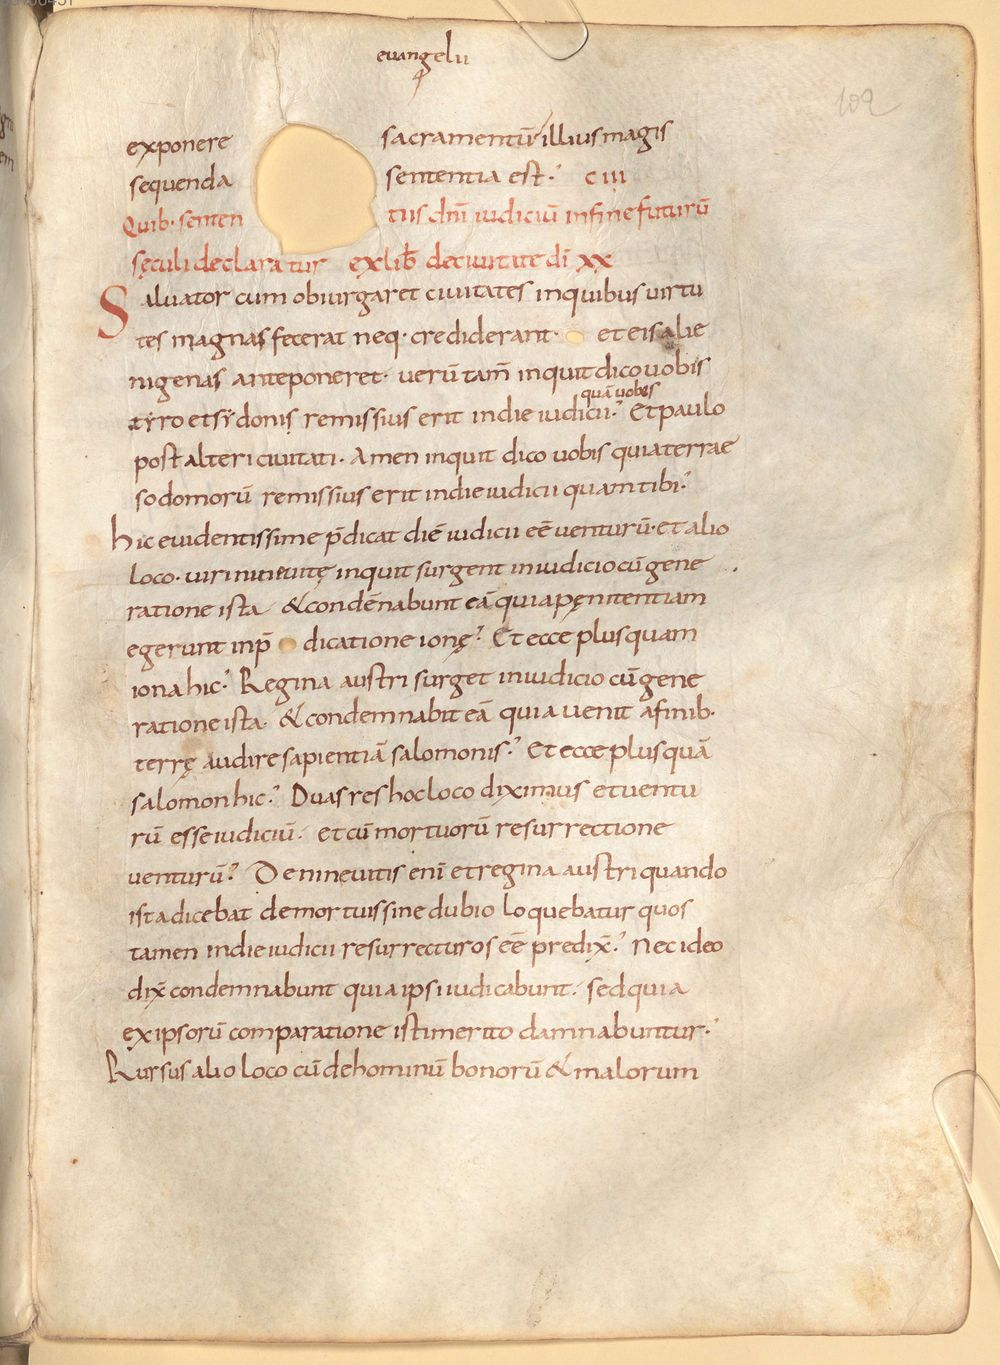 evangelii
102
exponere sacramentū illius magis
sequenda sententia est. CIII
Quib· senten tiis dn̄i iudiciū in fine futurū
sęculi declaratur ex lib̄ de civitate dī XX
Saluator cum obiurgaret civitates in quibus virtu
tes magnas fecerat neq· crediderant· et eis alie
nigenas anteponeret· verū tam̄ inquit dico vobis
quā vobis
tyro et sydonis remissius erit in die iudicii. Et paulo
post alteri civitati· Amen inquit dico vobis quia terrae
sodomorū remissius erit in die iudicii quam tibi.
hic evidentissime p̄dicat diē iudicii eē venturū· et alio
loco· viri ninevitę inquit surgent in iudicio cū gene
ratione ista & condēnabunt eā quia pęnitentiam
egerunt in p̄dicatione ionę. Et ecce plus quam
iona hic. Regina austri surget in iudicio cū gene
ratione ista· & condemnabit eā quia venit a finib·
terrę audire sapientiā salomonis. Et ecce plus quā
salomon hic. Duas res hoc loco diximus et ventu
rū esse iudiciū· et cū mortuorū resurrectione
venturū. De ninevitis enī et regina austri quando
ista dicebat de mortuis sine dubio loquebatur quos
tamen in die iudicii resurrecturos eē predix̄. Nec ideo
dix̄ condemnabunt quia ipsi iudicabunt· sed quia
ex ipsorū comparatione isti merito damnabuntur.
Rursus alio loco cū de hominū bonorū & malorum